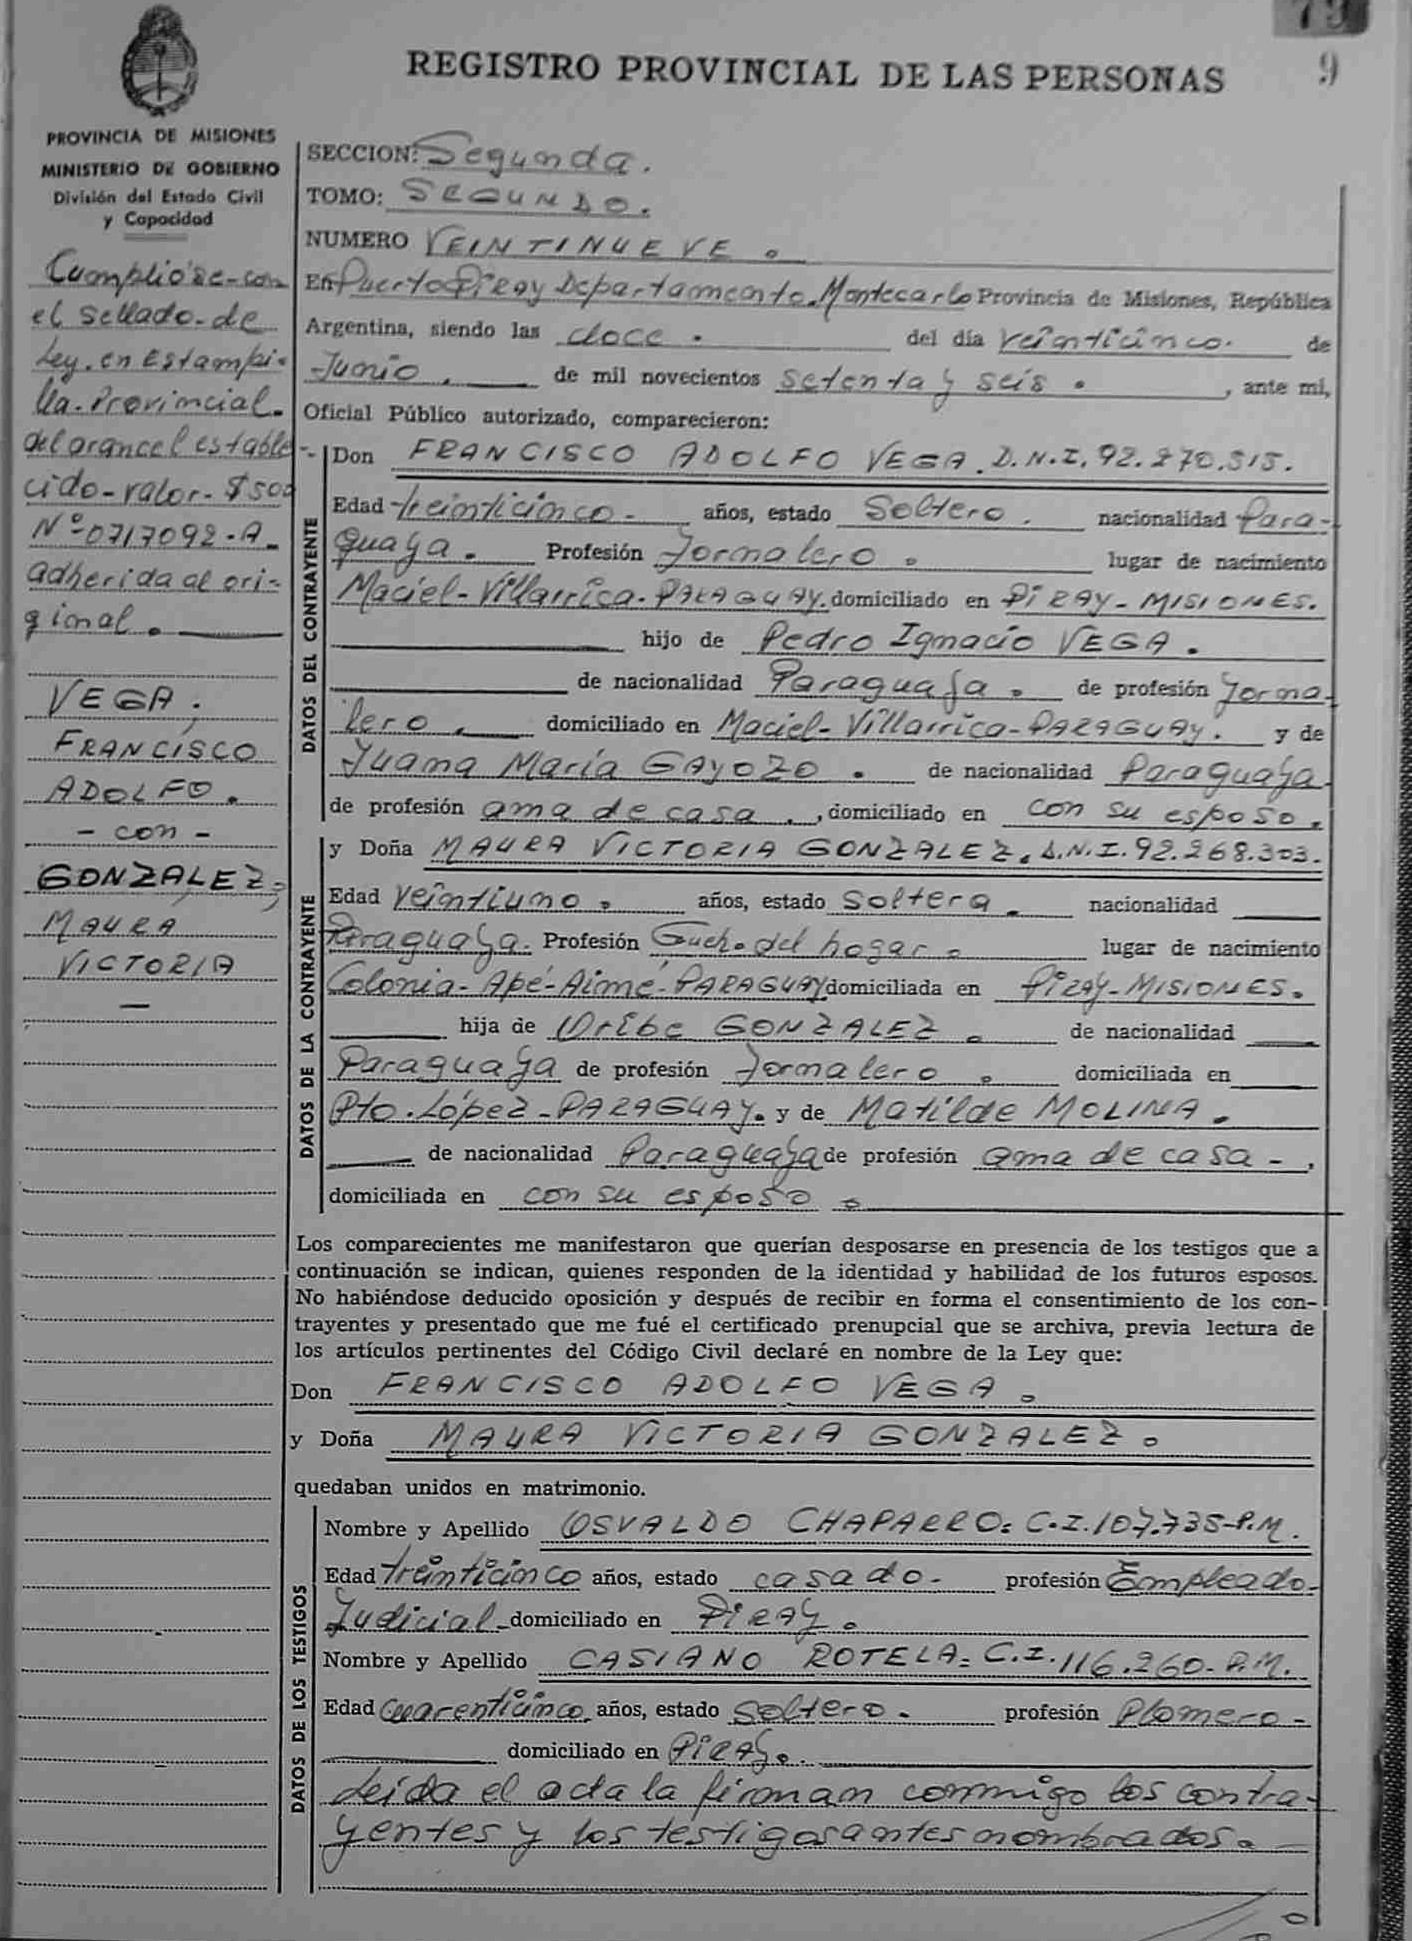 79
9
REGISTRO PROVINCIAL DE LAS PERSONAS
PROVINCIA DE MISIONES
MINISTERIO DE GOBIERNO
División del Estado Civil
y Capacidad
Cumplióse-con
el sellado-de
Ley. en Estampi-
lla. Provincial.
del arancel estable
cido-valor-$500
Nº-0717092-A-
adherida al ori-
ginal.
VEGA;
FRANCISCO
ADOLFO.
- con -
GONZALEZ;
MAURA
VICTORIA
SECCION: Segunda.
TOMO: SEGUNDO.
NUMERO VEINTINUEVE.
En Puerto Piray Departamento. Montecarlo Provincia de Misiones, República
Argentina, siendo las doce. del día veinticinco. de
Junio. de mil novecientos setenta y seis. , ante mi,
Oficial Público autorizado, comparecieron:
DATOS DEL CONTRAYENTE
Don FRANCISCO ADOLFO VEGA. D.N.I. 92.270.515.
Edad treinticinco- años, estado Soltero. nacionalidad Para-
guaya. Profesión Jornalero. lugar de nacimiento
Maciel-Villarrica-PARAGUAY. domiciliado en PIRAY-MISIONES.
hijo de Pedro Ignacio VEGA.
de nacionalidad Paraguaya. de profesión Jorna-
lero. domiciliado en Maciel-Villarrica-PARAGUAY. y de
Juana María GAYOZO. de nacionalidad Paraguaya
de profesión ama de casa. , domiciliado en con su esposo.
DATOS DE LA CONTRAYENTE
y Doña MAURA VICTORIA GONZALEZ. D.N.I. 92.268.303.
Edad veintiuno. años, estado soltera. nacionalidad
Paraguaya. Profesión Queh. del hogar. lugar de nacimiento
Colonia-Apé-Aimé-PARAGUAY domiciliada en PIRAY-MISIONES.
hija de Uribe GONZALEZ. de nacionalidad
Paraguaya de profesión Jornalero. domiciliada en
Pto. López-PARAGUAY. y de Matilde MOLINA.
de nacionalidad Paraguaya de profesión ama de casa-,
domiciliada en con su esposo.
Los comparecientes me manifestaron que querían desposarse en presencia de los testigos que a
continuación se indican, quienes responden de la identidad y habilidad de los futuros esposos.
No habiéndose deducido oposición y después de recibir en forma el consentimiento de los con-
trayentes y presentado que me fué el certificado prenupcial que se archiva, previa lectura de
los artículos pertinentes del Código Civil declaré en nombre de la Ley que:
Don FRANCISCO ADOLFO VEGA.
y Doña MAURA VICTORIA GONZALEZ.
quedaban unidos en matrimonio.
DATOS DE LOS TESTIGOS
Nombre y Apellido OSVALDO CHAPARRO: C.I. 107.735-P.M.
Edad treinticinco años, estado casado- profesión Empleado-
Judicial- domiciliado en PIRAY.
Nombre y Apellido CASIANO ROTELA: C.I. 116.260-P.M.
Edad cuarenticinco, años, estado soltero. profesión Plomero-
domiciliado en PIRAY.
Leida el acta la firman conmigo los contra-
yentes y los testigos antes nombrados.